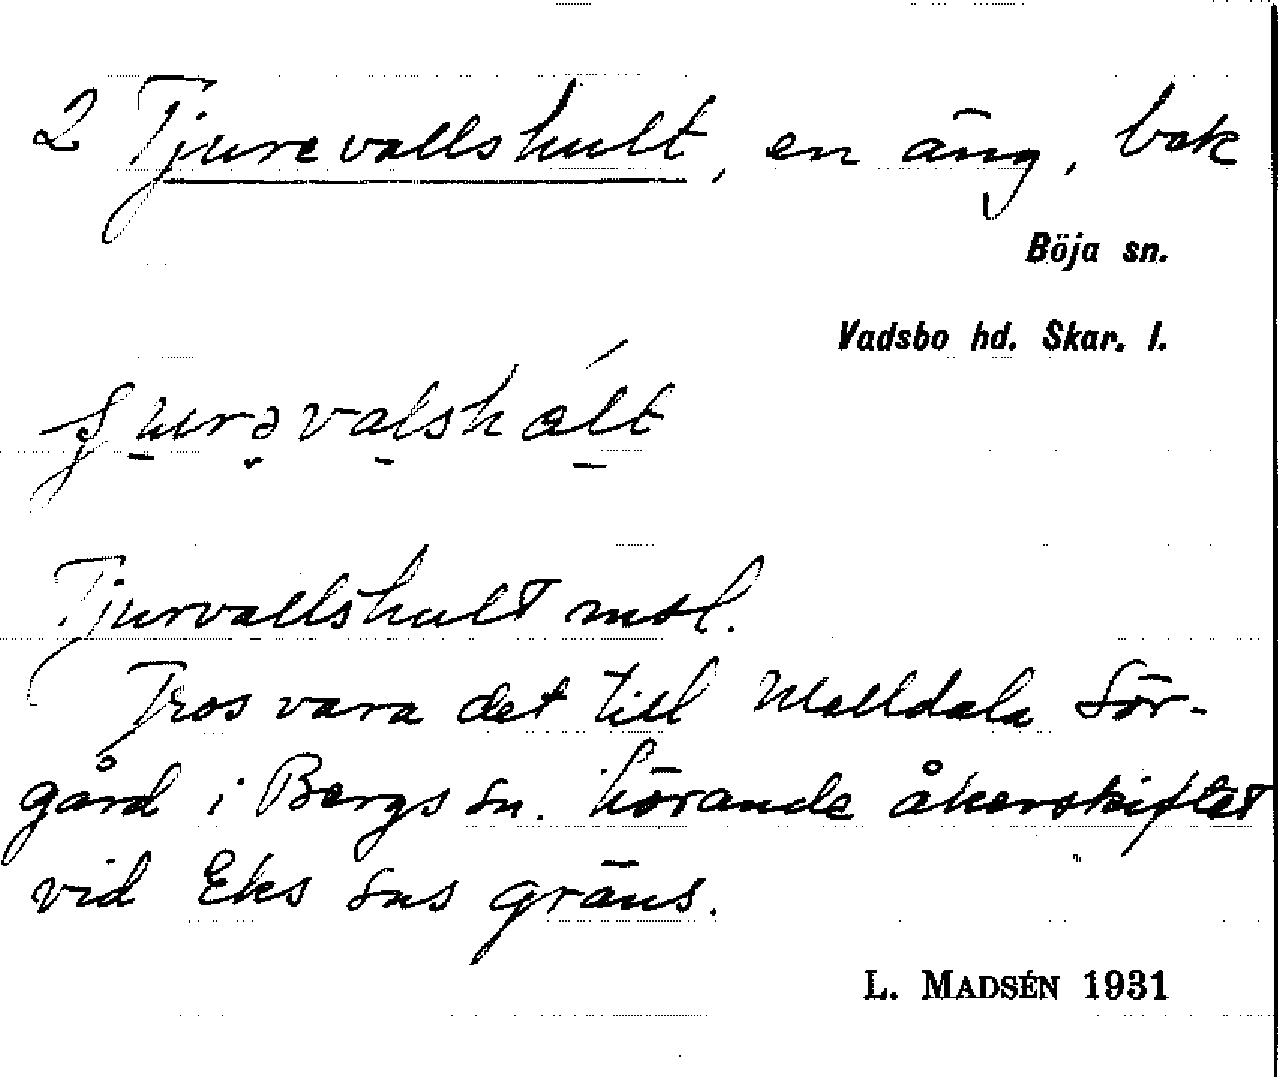 2 Tjurevallshult, en äng, bok
Böja sn.
Vadsbo hd. Skar. l.
ʃurəvalshált
Tjurvallshult msl.
Tros vara det till Malldala Sör-
gård i Bergs sn. hörande åkerskiftet
vid Eks sns gräns.
L. MADSÉN 1931